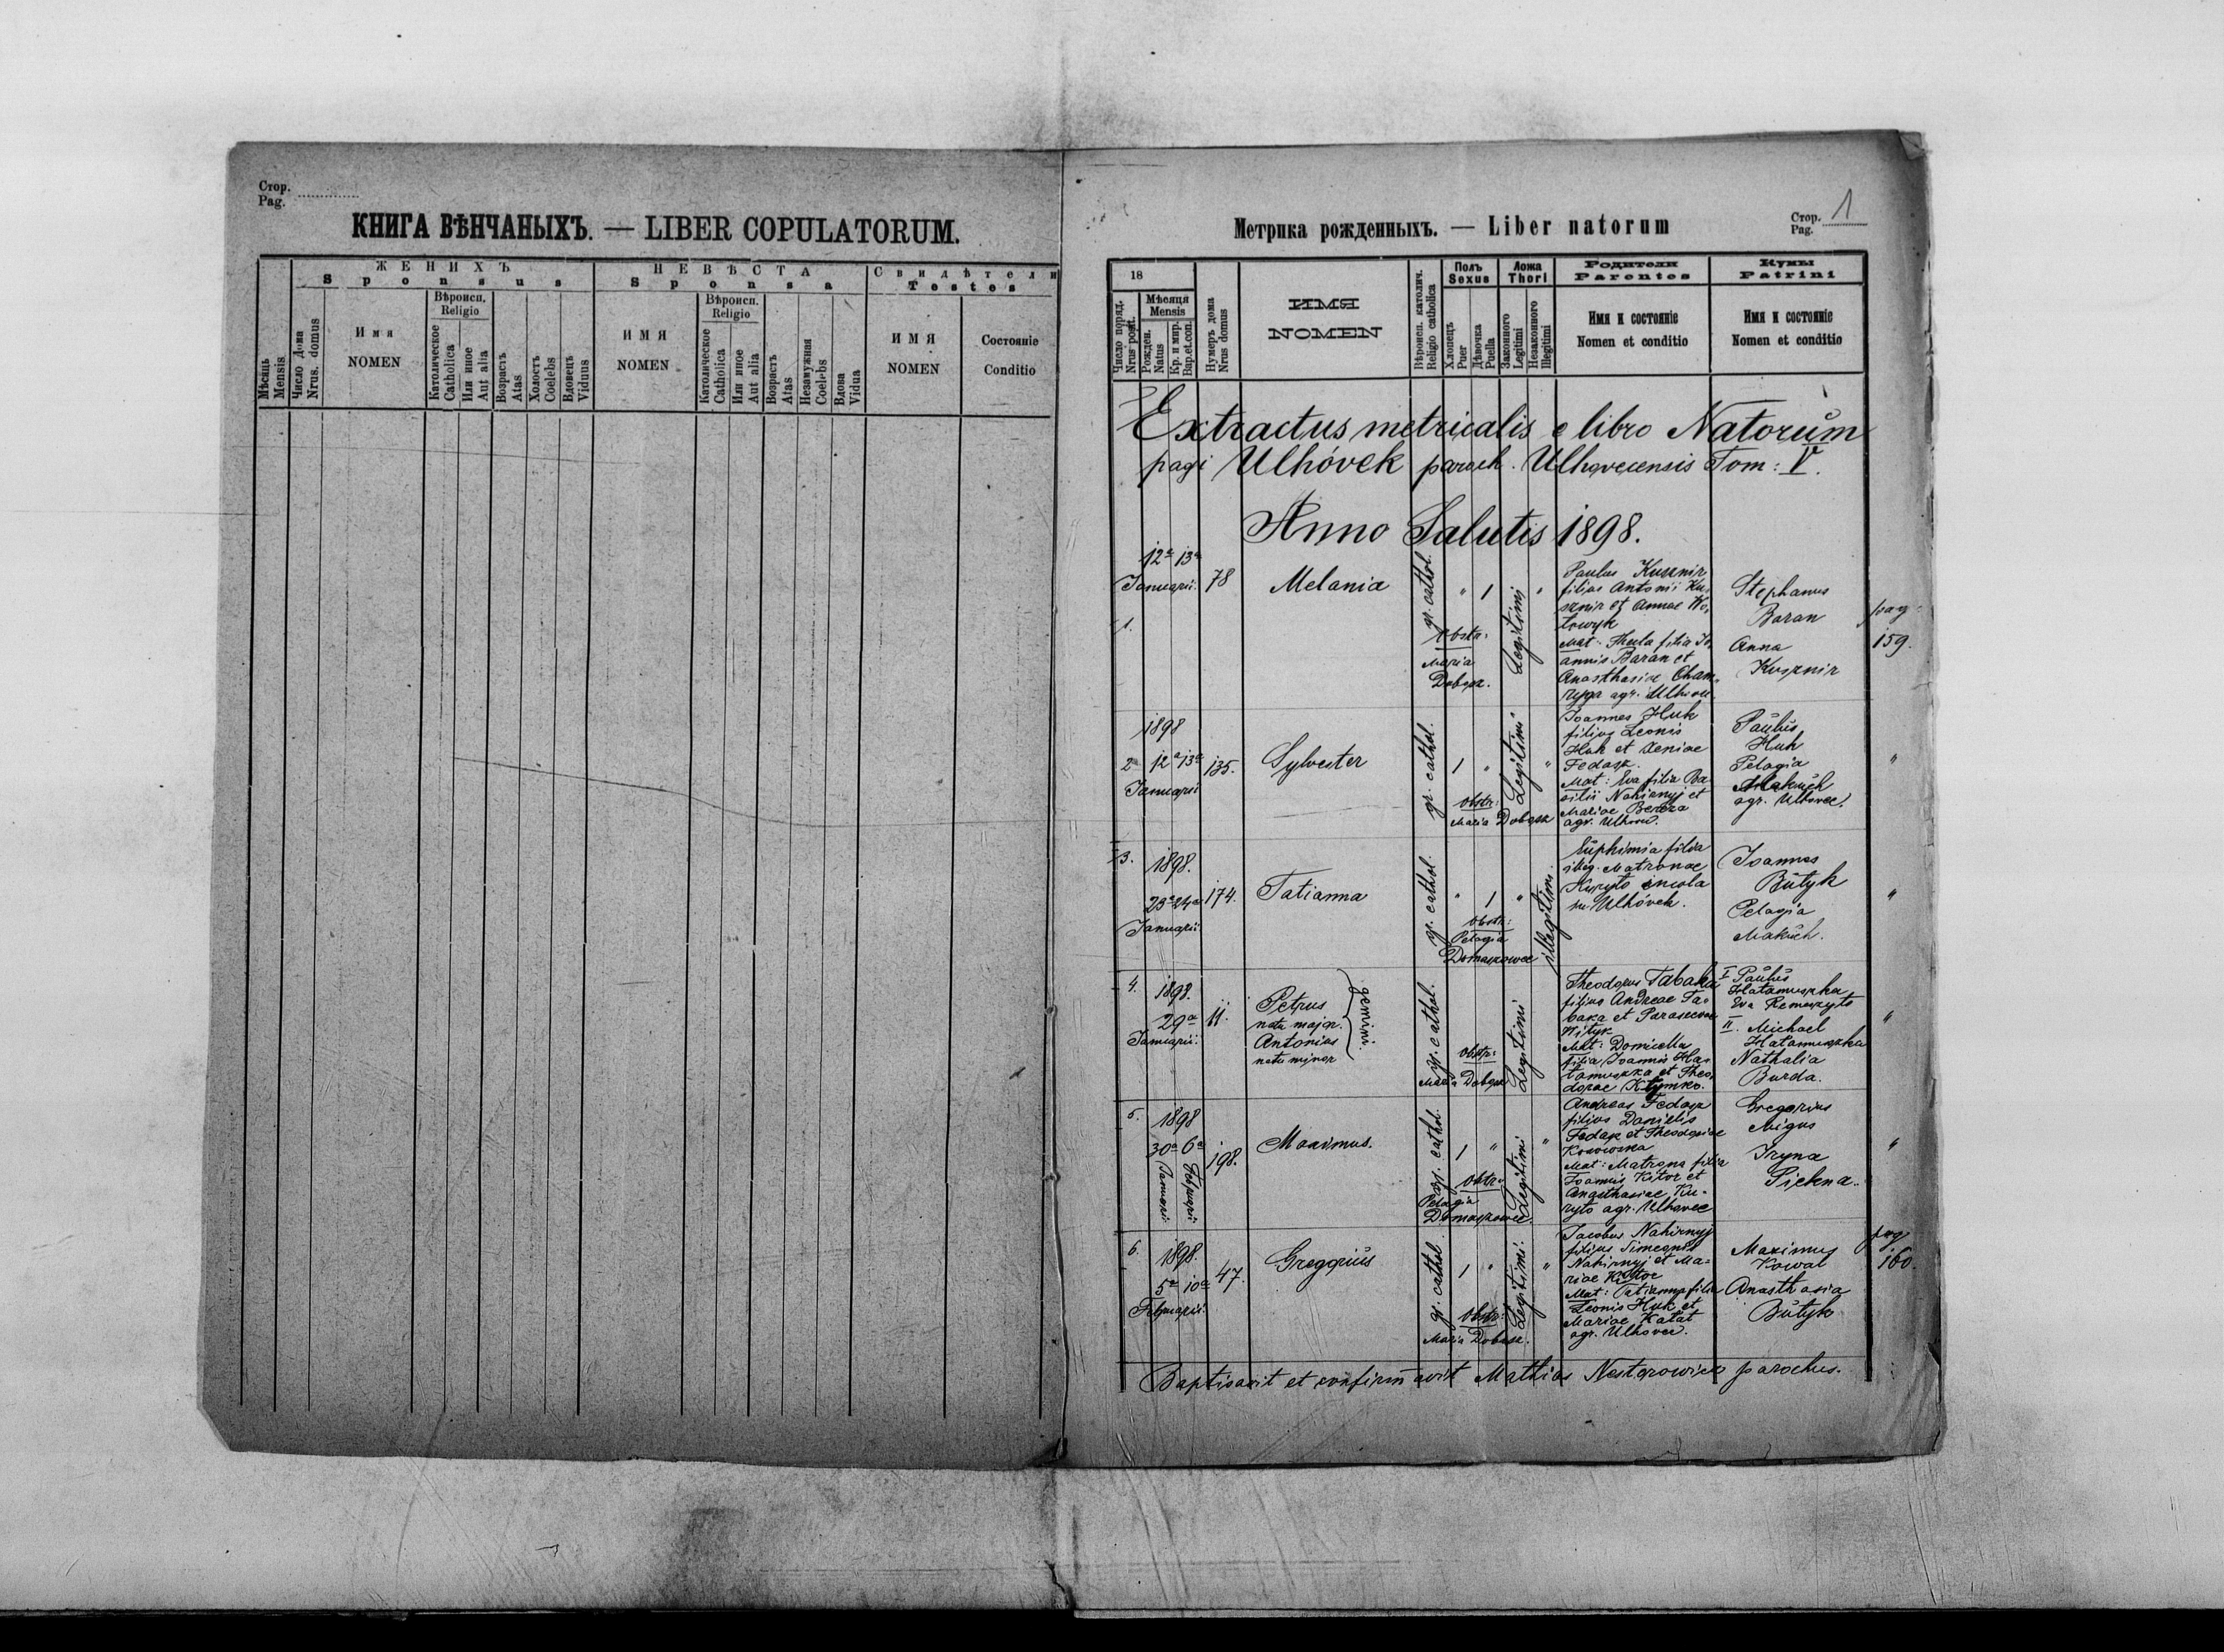 Стор.
Pag.
КНИГА ВѢНЧАНЫХЪ. — LIBER COPULATORUM.
Мѣсяць
Mensis
Число дома
Nrus. domus
ЖЕНИХЪ
Sponsus
Имя
NOMEN
Вѣроисп.
Religio
Католическое
Catholica
Или иное
Aut alia
Возрастъ
Atas
Холостъ
Coelebs
Вдовецъ
Viduus
НЕВѢСТА
Sponsa
ИМЯ
NOMEN
Вѣроисп.
Religio
Католическое
Catholica
Или иное
Aut alia
Возрастъ
Atas
Незамужная
Coelebs
Вдова
Vidua
Свидѣтели
Testes
ИМЯ
NOMEN
Состояніе
Conditio
Метрика рожденныхъ. — Liber natorum
Стор.
Pag. 1
18
Число поряд.
Nrus posit.
Мѣсяця
Mensis
Рожден.
Natus
Кр. и мир.
Bap.et.con.
Нумеръ дома
Nrus domus
ИМЯ
NOMEN
Вѣроисп. католич.
Religio catholica
Полъ
Sexus
Хлопецъ
Puer
Дѣвочка
Puella
Ложа
Thori
Законного
Legitimi
Незаконного
Illegitimi
Родители
Parentes
Имя и состояніе
Nomen et conditio
Кумы
Patrini
Имя и состояніе
Nomen et conditio
Extractus metricalis e libro Natorum
pagi Ulhóvek paroch. Ulhovecensis Tom: V.
Anno Salutis 1898.
1.
12a 13a
Januarii
78
Melania
gr. cathol.
" 1
Obstr:
Maria
Dobosz.
Legitimi
"
Paulus Kusznir
filius Antonii Ku-
sznir et Annae
Mat: Thecla filia Jo-
annis Baran et
Anasthasiae Cham-
agr. Ulhovec
Stephanus
Baran
Anna
Kusznir
pag
159.
2
1898
12a 13a
Januarii
135.
Sylvester
gr. cathol.
1 "
Obstr:
Maria Dobosz
Legitimi
"
Joannes Huk
filius Leonis
Huk et Xeniae
Fedasz.
Mat: Eva filia Ba-
silii Nahirnyj et
Mariae Bereza
agr. Ulhovec.
Paulus
Huk
Pelagia
Makuch
agr. Ulhovec.
"
3.
1898.
23a 24a
Januarii
174.
Tatianna
gr. cathol.
" 1
Obstr:
Pelagia
Domaszowec
"
illegitimi
Euphimia filia
illeg. Matronae
Kuryto incola
in Ulhóvek.
Joannes
Butyk
Pelagia
Makuch.
"
4.
1898.
29a
Januarii
11.
Petrus
natu major.
Antonius
natu minor
gemini.
gr. cathol.
Obstr:
Maria Dobosz
Legitimi
Theodorus Tabaka
filius Andreae Ta-
baka et Parascevae
Mat: Domicella
filia Joannis Ha-
tamuszka et Theo-
dorae Klymko.
I Paulus
Hatamuszka
Eva
II. Michael
Hatamuszka
Nathalia
Burda.
"
5.
1898
30a 6a
Januarii
Februarii
198.
Maximus.
gr. cathol.
1 "
Obstr:
Pelagia
Domaszowec
Legitimi
"
Andreas Fedasz
filius Danielis
Fedasz et Theodosiae
Mat: Matrona filia
Joannis Kitor et
Anasthasiae Ku-
ryto agr. Ulhovec
Gregorius
Migus
Iryna
Piekna.
"
6.
1898.
5a 10a
Februarii
47.
Gregorius
gr. cathol.
1 "
Obstr:
Maria Dobosz.
Legitimi.
"
Jacobus Nahirnyj
filius Simeonis
Nahirnyj et Ma-
riae
Mat: Tatianna filia
Leonis Huk et
Mariae Katat
agr. Ulhovec.
Maximus
Kowal
Anasthasia
Butyk
pag
160
Baptisavit et confirmavit Mathias Nestorowicz parochus.